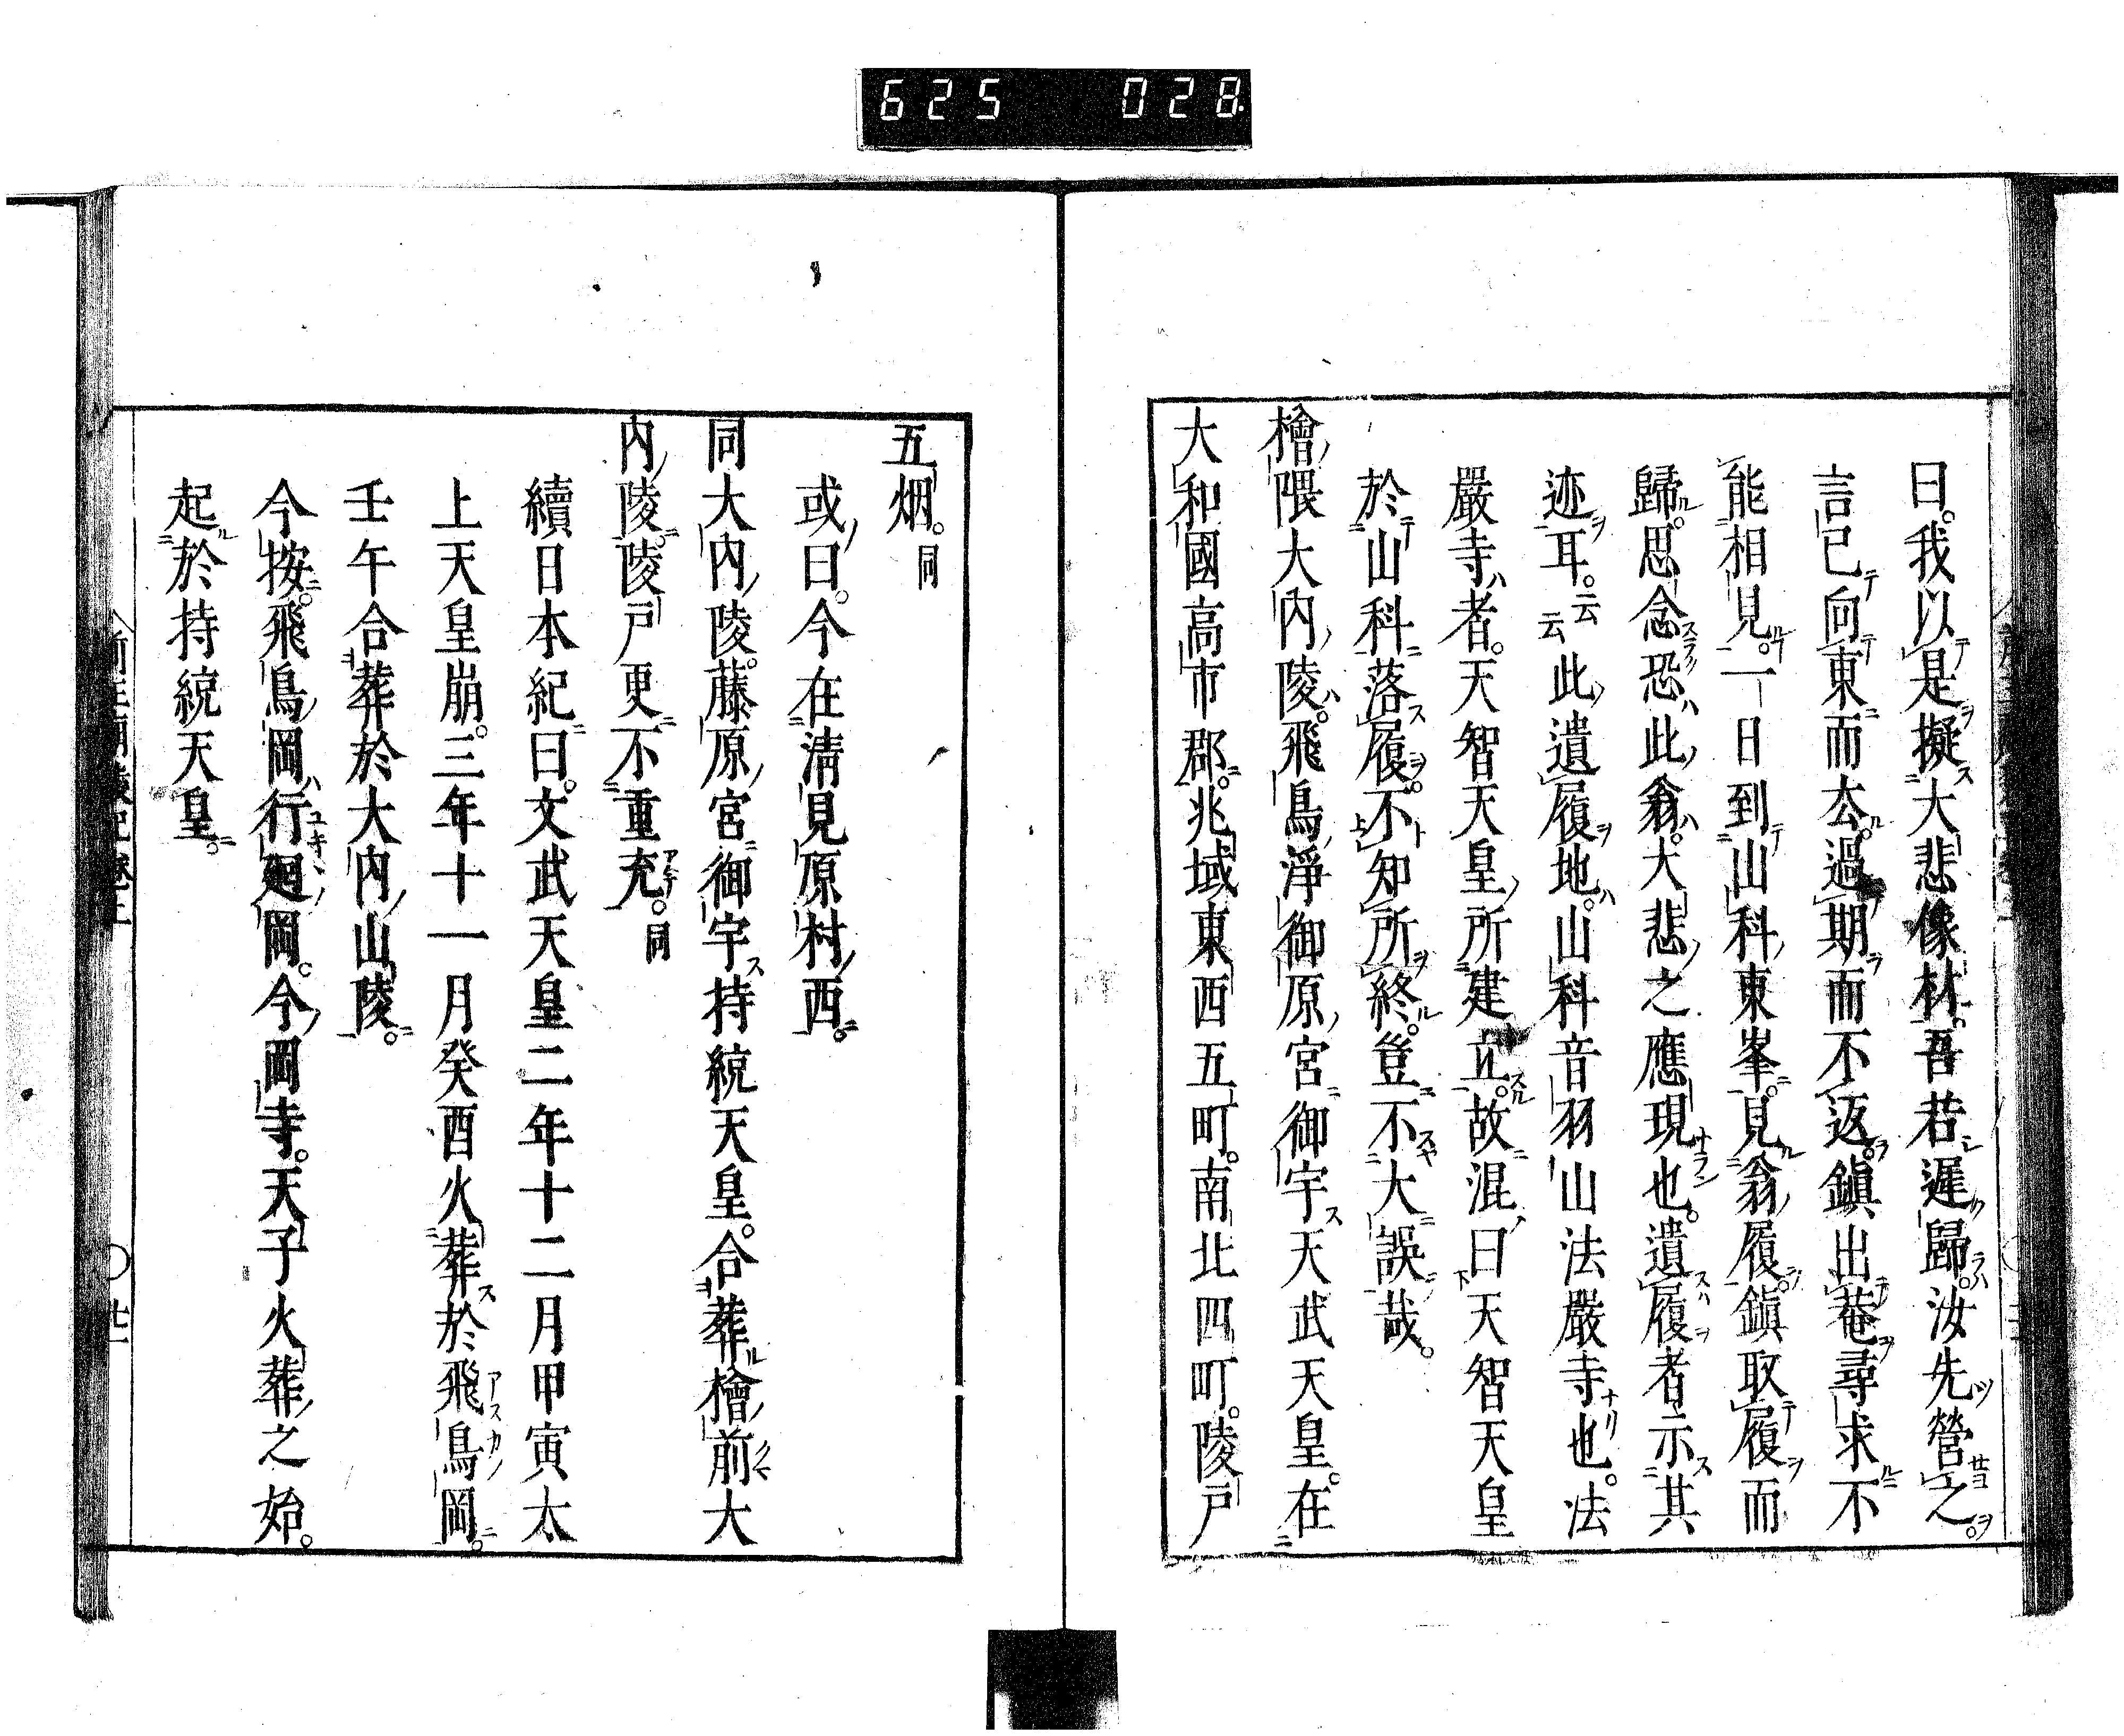 625 028
曰。我以是擬大悲像材。吾若遲歸。汝先營之。
言已向東而去。過期而不返。鎭出菴尋求不
能相見。一日到山科東峯。見翁履。鎭取履而
歸。思念恐此翁。大悲之應現也。遺履者示其
迹耳。云云此遺履地。山科音羽山法嚴寺也。法
嚴寺者。天智天皇所建立。故混曰天智天皇
於山科落履。不知所終。豈不大誤哉。
檜隈大內陵。飛鳥淨御原宮御宇天武天皇。在
大和國高市郡。兆域東西五町。南北四町。陵戸
五烟。同
或曰。今在淸見原村西。
同大內陵。藤原宮御宇持統天皇。合葬檜前大
內陵。陵戸更不重充。同
續日本紀曰。文武天皇二年十二月甲寅太
上天皇崩。三年十一月癸酉火葬於飛鳥岡。
壬午合葬於大內山陵。
今按。飛鳥岡行廻岡。今岡寺。天子火葬之始。
起於持統天皇。